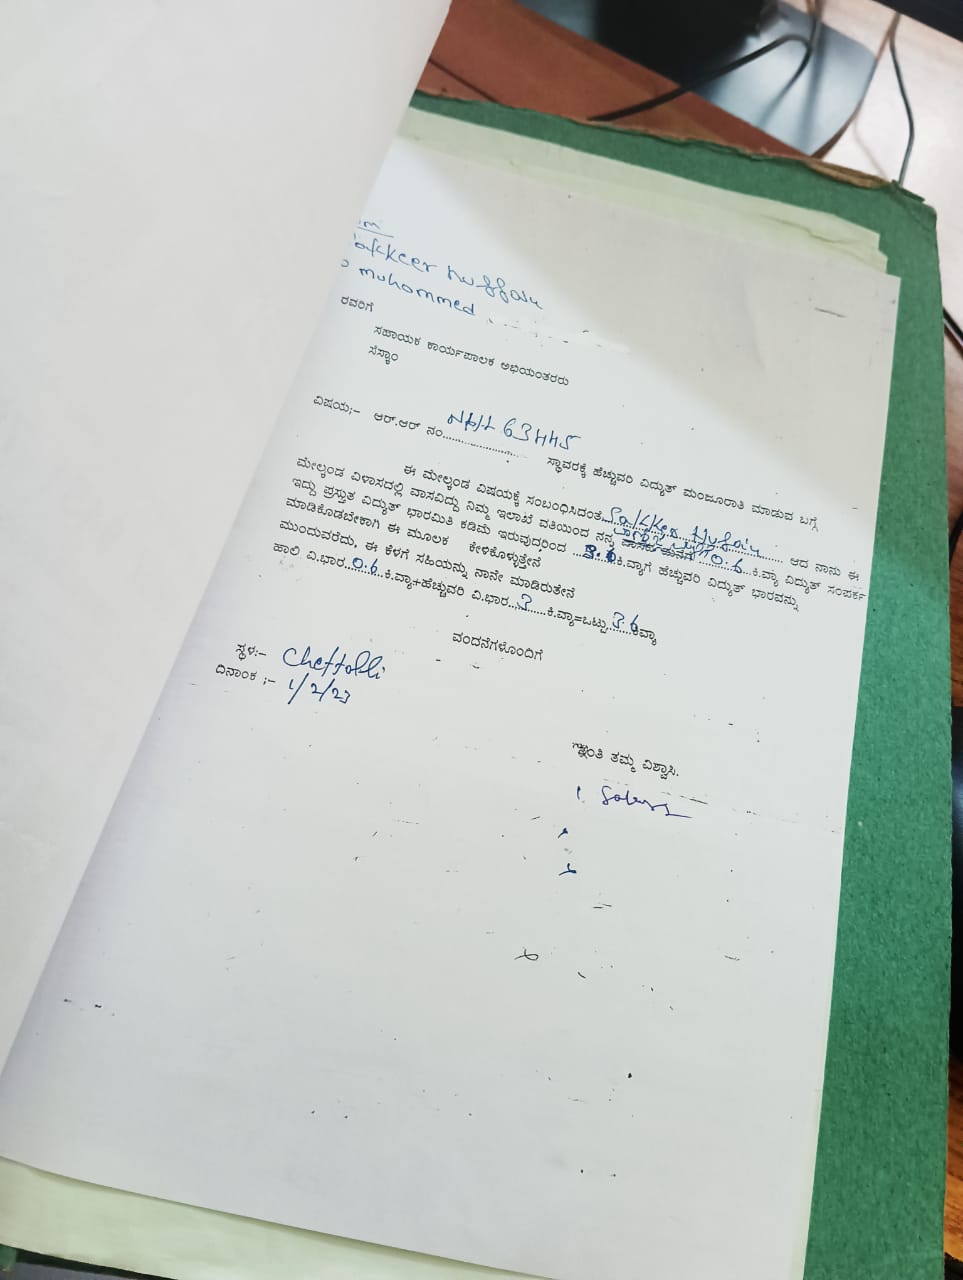 muhommed
ರವರಿಗೆ
ಸಹಾಯಕ ಕಾರ್ಯಪಾಲಕ ಅಭಿಯಂತರರು
ಸೆಸ್ಕಾಂ
ವಿಷಯ:- ಆರ್.ಆರ್ ನಂ.................... 63445 ಸ್ಥಾವರಕ್ಕೆ ಹೆಚ್ಚುವರಿ ವಿದ್ಯುತ್ ಮಂಜೂರಾತಿ ಮಾಡುವ ಬಗ್ಗೆ
ಈ ಮೇಲ್ಕಂಡ ವಿಷಯಕ್ಕೆ ಸಂಬಂಧಿಸಿದಂತೆ Sakkeer Hussain ಆದ ನಾನು ಈ
ಮೇಲ್ಕಂಡ ವಿಳಾಸದಲ್ಲಿ ವಾಸವಿದ್ದು ನಿಮ್ಮ ಇಲಾಖೆ ವತಿಯಿಂದ ನನ್ನ 0.6 ಕಿ.ವ್ಯಾ ವಿದ್ಯುತ್ ಸಂಪರ್ಕ
ಇದ್ದು ಪ್ರಸ್ತುತ ವಿದ್ಯುತ್ ಭಾರಮಿತಿ ಕಡಿಮೆ ಇರುವುದರಿಂದ 3.6 ಕಿ.ವ್ಯಾಗೆ ಹೆಚ್ಚುವರಿ ವಿದ್ಯುತ್ ಭಾರವನ್ನು
ಮಾಡಿಕೊಡಬೇಕಾಗಿ ಈ ಮೂಲಕ ಕೇಳಿಕೊಳ್ಳುತ್ತೇನೆ
ಮುಂದುವರೆದು, ಈ ಕೆಳಗೆ ಸಹಿಯನ್ನು ನಾನೇ ಮಾಡಿರುತೇನೆ
ಹಾಲಿ ವಿ.ಭಾರ 0.6 ಕಿ.ವ್ಯಾ+ಹೆಚ್ಚುವರಿ ವಿ.ಭಾರ 3 ಕಿ.ವ್ಯಾ=ಒಟ್ಟು 3.6 ಕಿವ್ಯಾ
ವಂದನೆಗಳೊಂದಿಗೆ
ಸ್ಥಳ:- Chettolli
ದಿನಾಂಕ :- 1/2/23
ಇಂತಿ ತಮ್ಮ ವಿಶ್ವಾಸಿ.